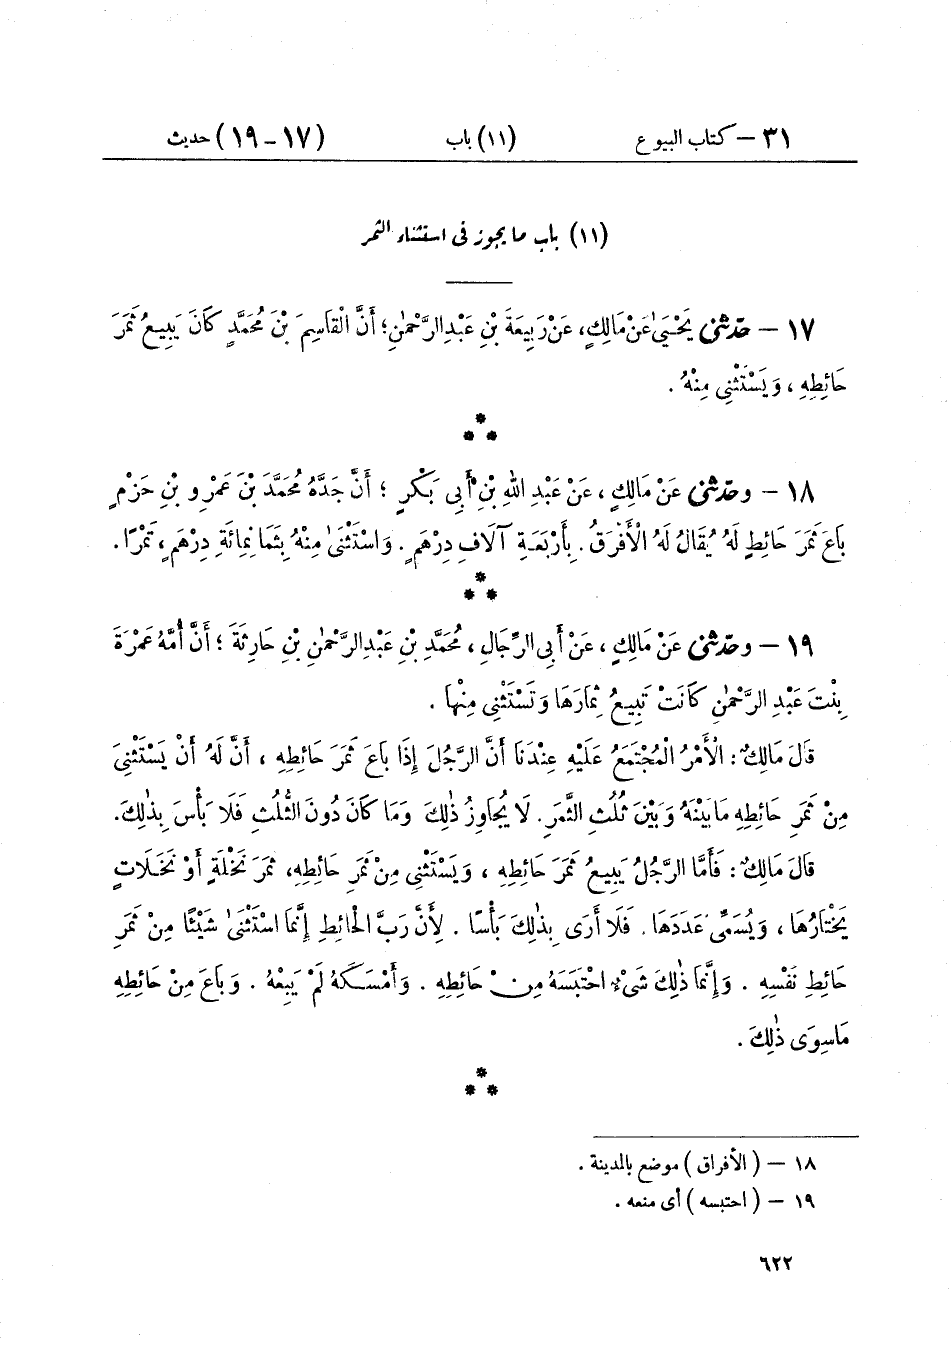 ٣١ – كتاب البيوع (١١) باب (١٧ – ١٩) حديث
(١١) باب ما يجوز فى استثناء الثمر
١٧ – حَدّثنى يَحْيَىٰ عَنْ مَالِكٍ، عَنْ رَبِيعَةَ بْنِ عَبْدِ الرَّحْمٰنِ؛ أَنَّ الْقَاسِمَ بْنَ مُحَمَّدٍ كَانَ يَبِيعُ ثَمَرَ
حَائِطِهِ ، وَيَسْتَثْنِى مِنْهُ .
١٨ – وحَدّثنى عَنْ مَالِكٍ ، عَنْ عَبْدِ اللهِ بْنِ أَبِى بَكْرٍ ؛ أَنَّ جَدَّهُ مُحَمَّدَ بْنَ عَمْرِو بْنِ حَزْمٍ
بَاعَ ثَمَرَ حَائِطٍ لَهُ يُقَالُ لَهُ الْأَفْرَقُ . بِأَرْبَعَةِ آلَافِ دِرْهَمٍ . وَاسْتَثْنَىٰ مِنْهُ بِثَمَانِمِائَةِ دِرْهَمٍ، تَمْرًا .
١٩ – وحَدّثنى عَنْ مَالِكٍ ، عَنْ أَبِى الرِّجَالِ ، مُحَمَّدِ بْنِ عَبْدِ الرَّحْمٰنِ بْنِ حَارِثَةَ ؛ أَنَّ أُمَّهُ عَمْرَةَ
بِنْتَ عَبْدِ الرَّحْمٰنِ كَانَتْ تَبِيعُ ثِمَارَهَا وَتَسْتَثْنِى مِنْهَا .
قَالَ مَالِكٌ : الْأَمْرُ الْمُجْتَمَعُ عَلَيْهِ عِنْدَنَا أَنَّ الرَّجُلَ إِذَا بَاعَ ثَمَرَ حَائِطِهِ ، أَنَّ لَهُ أَنْ يَسْتَثْنِىَ
مِنْ ثَمَرِ حَائِطِهِ مَا بَيْنَهُ وَبَيْنَ ثُلُثِ الثَّمَرِ . لَا يُجَاوِزُ ذٰلِكَ وَمَا كَانَ دُونَ الثُّلُثِ فَلَا بَأْسَ بِذٰلِكَ.
قَالَ مَالِكٌ : فَأَمَّا الرَّجُلُ يَبِيعُ ثَمَرَ حَائِطِهِ ، وَيَسْتَثْنِى مِنْ ثَمَرِ حَائِطِهِ، ثَمَرَ نَخْلَةٍ أَوْ نَخَلَاتٍ
يَخْتَارُهَا ، وَيُسَمِّى عَدَدَهَا . فَلَا أَرَى بِذٰلِكَ بَأْسًا . لِأَنَّ رَبَّ الْحَائِطِ إِنَّمَا اسْتَثْنَىٰ شَيْئًا مِنْ ثَمَرِ
حَائِطِ نَفْسِهِ . وَإِنَّمَا ذٰلِكَ شَىْءٌ احْتَبَسَهُ مِنْ حَائِطِهِ . وَأَمْسَكَهُ لَمْ يَبِعْهُ . وَبَاعَ مِنْ حَائِطِهِ
مَاسِوَى ذٰلِكَ .
١٨ – ( الأفراق ) موضع بالمدينة .
١٩ – ( احتبسه ) أى منعه .
٦٢٢